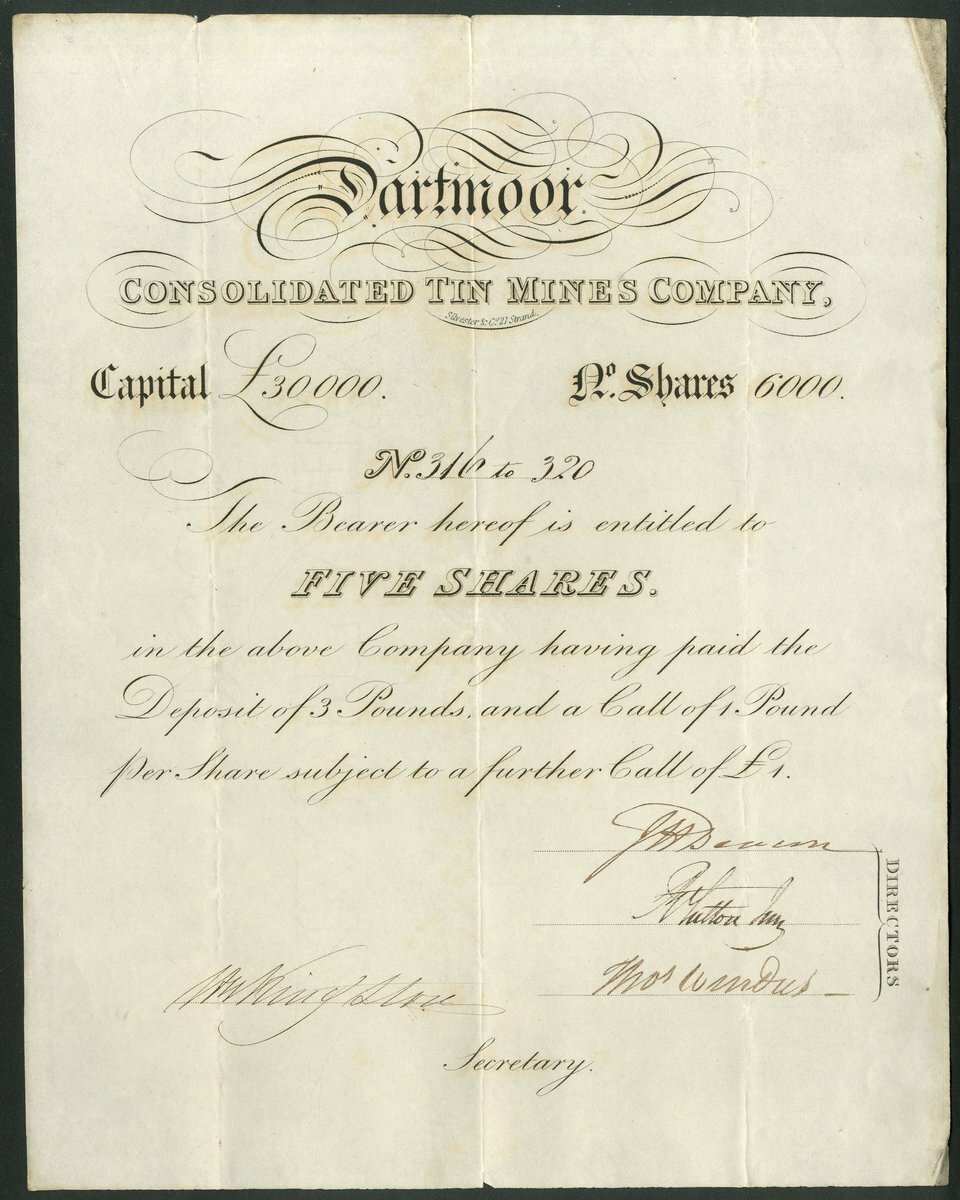 Dartmoor
CONSOLIDATED TIN MINES COMPANY,
Silvester & Co. 27 Strand.
Capital £30000. No. Shares 6000.
No. 316 to 320
The Bearer hereof is entitled to
FIVE SHARES.
in the above Company having paid the
Deposit of 3 Pounds, and a Call of 1 Pound
per Share subject to a further Call of £1.
Thos Windus
DIRECTORS
Wm Kingston
Secretary.